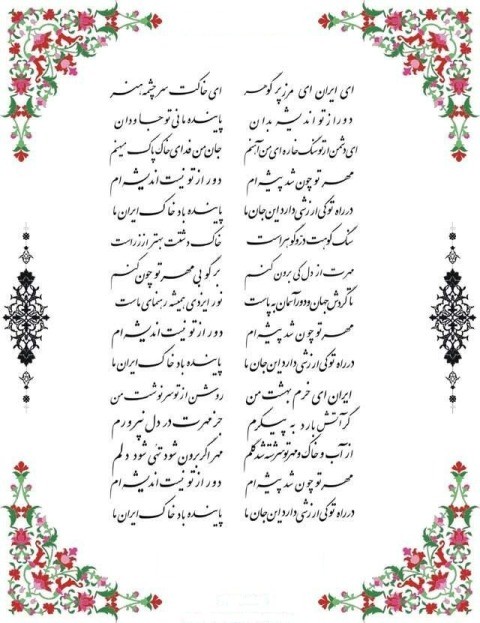 ای ایران ای مرز پر گوهر ای خاکت سرچشمه هنر
دور از تو اندیشه بدان پاینده مانی تو جاودان
ای دشمن ار تو سنگ خاره ای من آهنم جان من فدای خاک پاک میهنم
مهر تو چون شد پیشه ام دور از تو نیست اندیشه ام
در راه تو کی ارزشی دارد این جان ما پاینده باد خاک ایران ما
سنگ کوهت در و گوهر است خاک دشتت بهتر از زر است
مهرت از دل کی برون کنم بر گو بی مهر تو چون کنم
تا گردش جهان و دور آسمان به پاست نور ایزدی همیشه رهنمای ماست
مهر تو چون شد پیشه ام دور از تو نیست اندیشه ام
در راه تو کی ارزشی دارد این جان ما پاینده باد خاک ایران ما
ایران ای خرم بهشت من روشن از تو سرنوشت من
گر آتش بارد به پیکرم جز مهرت در دل نپرورم
از آب و خاک و مهر تو سرشته شد گلم مهر اگر برون شود تهی شود دلم
مهر تو چون شد پیشه ام دور از تو نیست اندیشه ام
در راه تو کی ارزشی دارد این جان ما پاینده باد خاک ایران ما